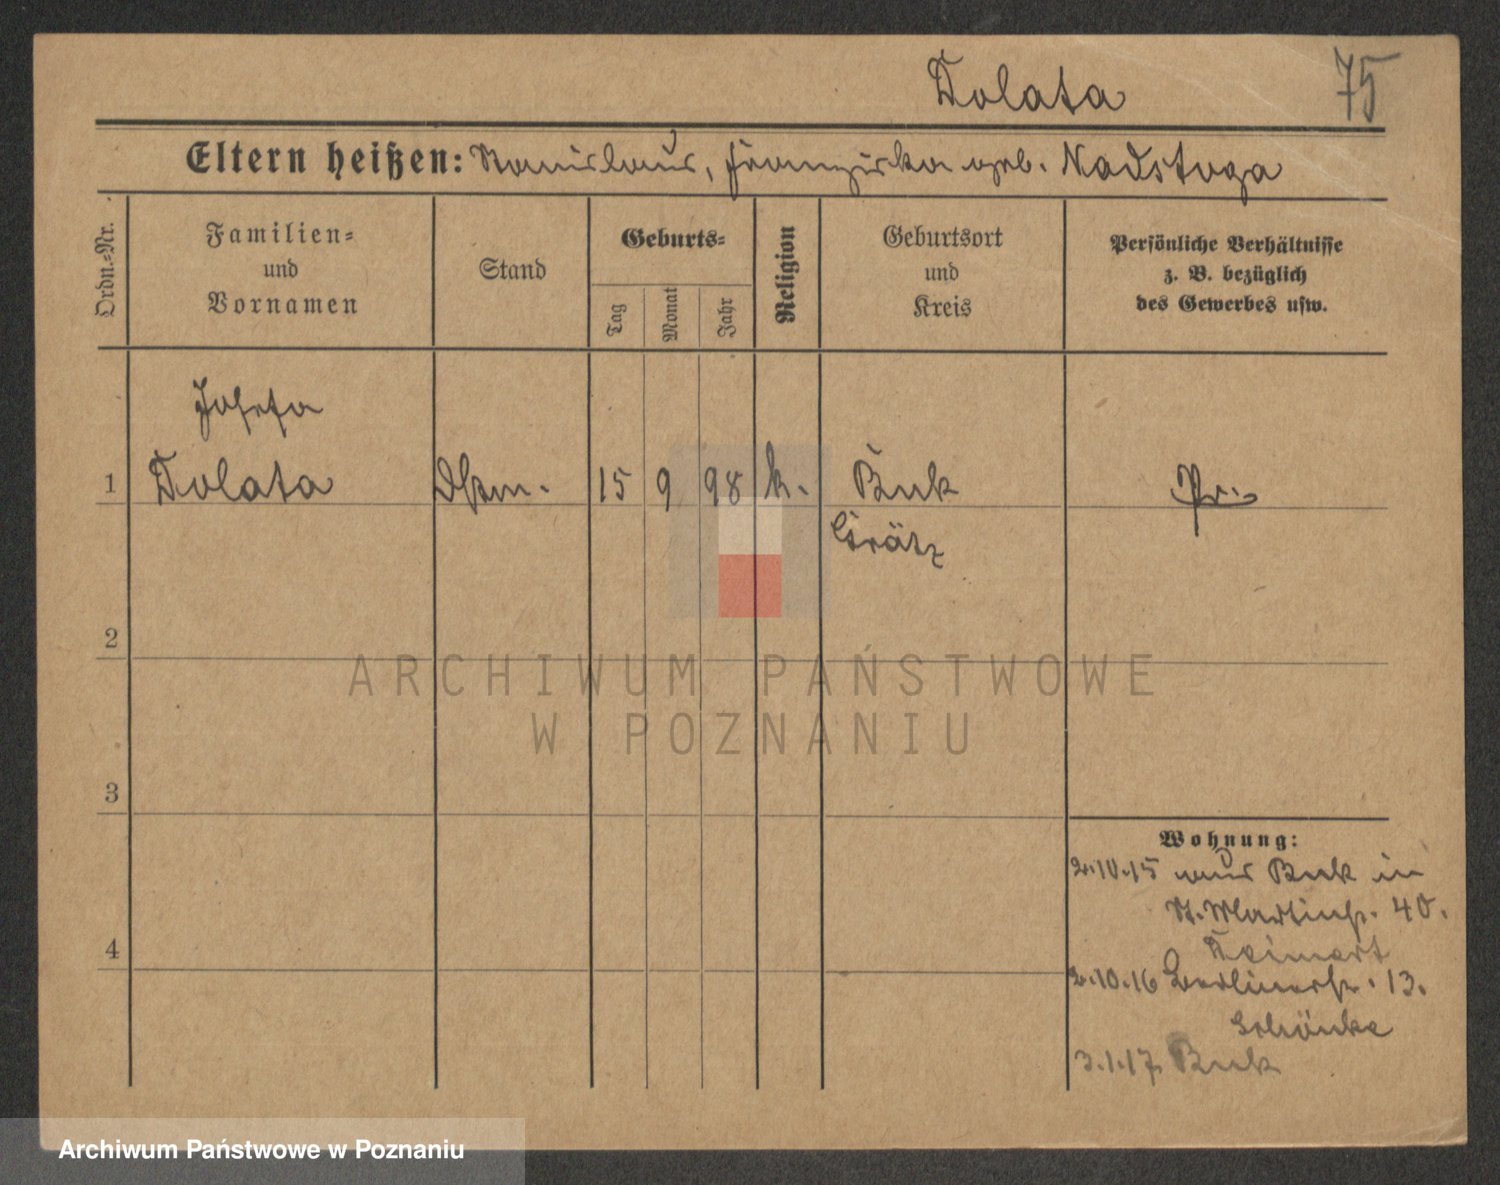 Dolata
75
Eltern heißen: Stanislaus, Franziska geb. Nadstoga
Ordn.-Nr.
Familien-
und
Vornamen
Stand
Geburts-
Tag
Monat
Jahr
Religion
Geburtsort
und
Kreis
Persönliche Verhältnisse
z. B. bezüglich
des Gewerbes usw.
Josefa
1 Dolata 15 9 98 k. Buk Pr.
Grätz
2
ARCHIWUM PAŃSTWOWE
W POZNANIU
3
Wohnung:
2.10.15 aus Buk in
St. Martinstr. 40.
4
2.10.16 Berlinerstr. 13.
Schönke
3.1.17. Buk
Archiwum Państwowe w Poznaniu